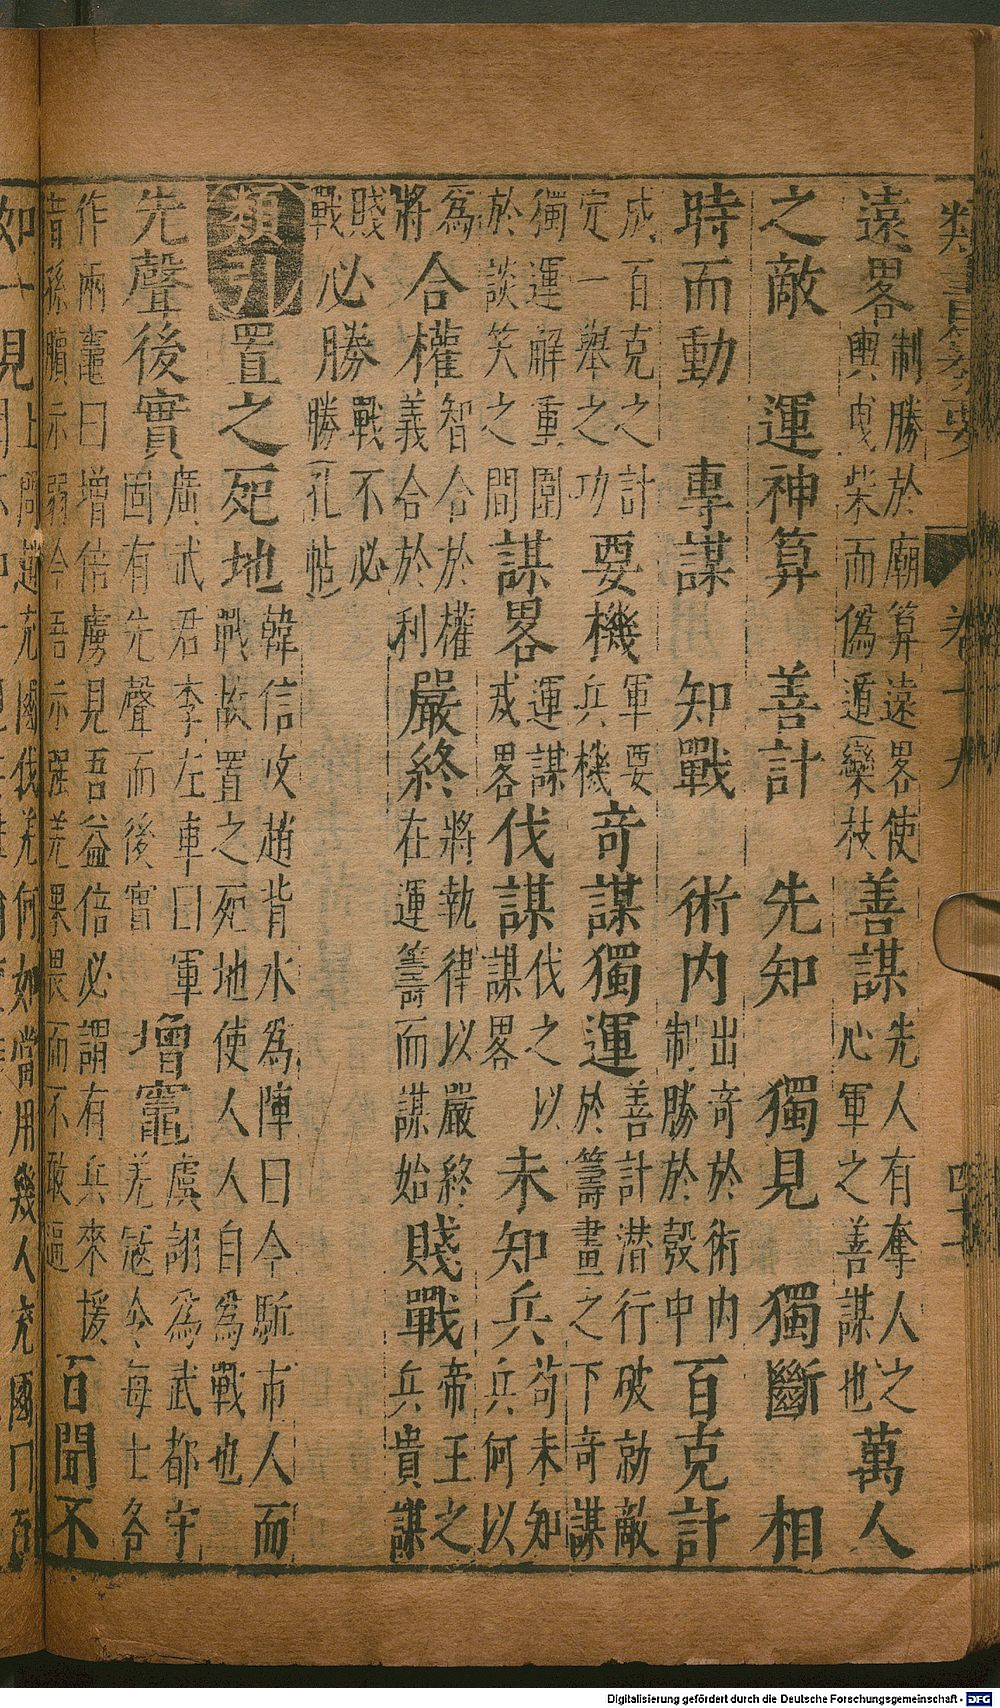 遠畧 制勝於廟算遠畧使 輿曳柴而偽遁欒枝 善謀 先人有奪人之 心軍之善謀也 萬人
之敵 運神算 善計 先知 獨見 獨斷 相
時而動 專謀 知戰 術内 出奇於術内 制勝於彀中 百克計
成百克之計 定一舉之功 要機 軍要 兵機 奇謀獨運 善計潛行破勍敵 於籌畫之下奇謀
獨運解重圍 於談笑之間 謀畧 運謀 戎畧 伐謀 伐之以 謀畧 未知兵 苟未知 兵何以
為 將 合權 智合於權 義合於利 嚴終 將執律以嚴終 在運籌而謀始 賤戰 帝王之 兵貴謀
賤 戰 必勝 戰不必 勝孔帖
類引 置之死地 韓信攻趙背水為陣曰今驅市人而 戰故置之死地使人人自為戰也
先聲後實 廣武君李左車曰軍 固有先聲而後實 增竈 虞詡為武都守 羌冦令每士各
作兩竈曰增倍虜見吾益倍必謂有兵來援 昔孫臏示弱今吾示强羌果畏而不敢逼 百聞不
如一見 上問趙充國伐羌何如當用幾人充國曰百
卷十九
Digitalisierung gefördert durch die Deutsche Forschungsgemeinschaft - DFG